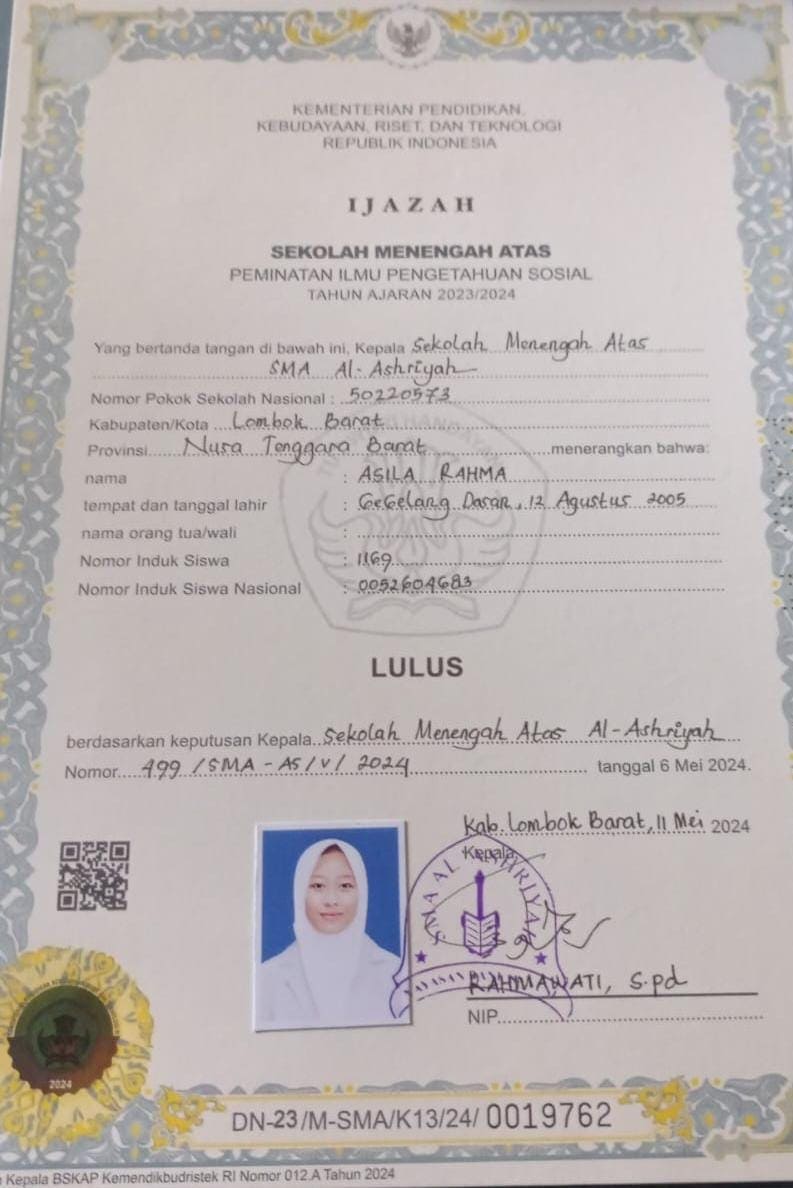 KEMENTERIAN PENDIDIKAN,
KEBUDAYAAN, RISET, DAN TEKNOLOGI
REPUBLIK INDONESIA
IJAZAH
SEKOLAH MENENGAH ATAS
PEMINATAN ILMU PENGETAHUAN SOSIAL
TAHUN AJARAN 2023/2024
Yang bertanda tangan di bawah ini, Kepala Sekolah Menengah Atas
SMA Al-Ashriyah
Nomor Pokok Sekolah Nasional : 50220573
Kabupaten/Kota Lombok Barat
Provinsi Nusa Tenggara Barat menerangkan bahwa:
nama : ASILA RAHMA
tempat dan tanggal lahir : GeGelang Dasan, 12 Agustus 2005
nama orang tua/wali :
Nomor Induk Siswa : 1169
Nomor Induk Siswa Nasional : 0052604683
LULUS
berdasarkan keputusan Kepala Sekolah Menengah Atas Al-Ashriyah
Nomor 499/SMA-AS/V/2024 tanggal 6 Mei 2024.
Kab. Lombok Barat, 11 Mei 2024
Kepala,
SMA AL ASHRIYAH
RAHMAWATI, S.pd
NIP
2024
DN-23/M-SMA/K13/24/0019762
Kepala BSKAP Kemendikbudristek RI Nomor 012.A Tahun 2024